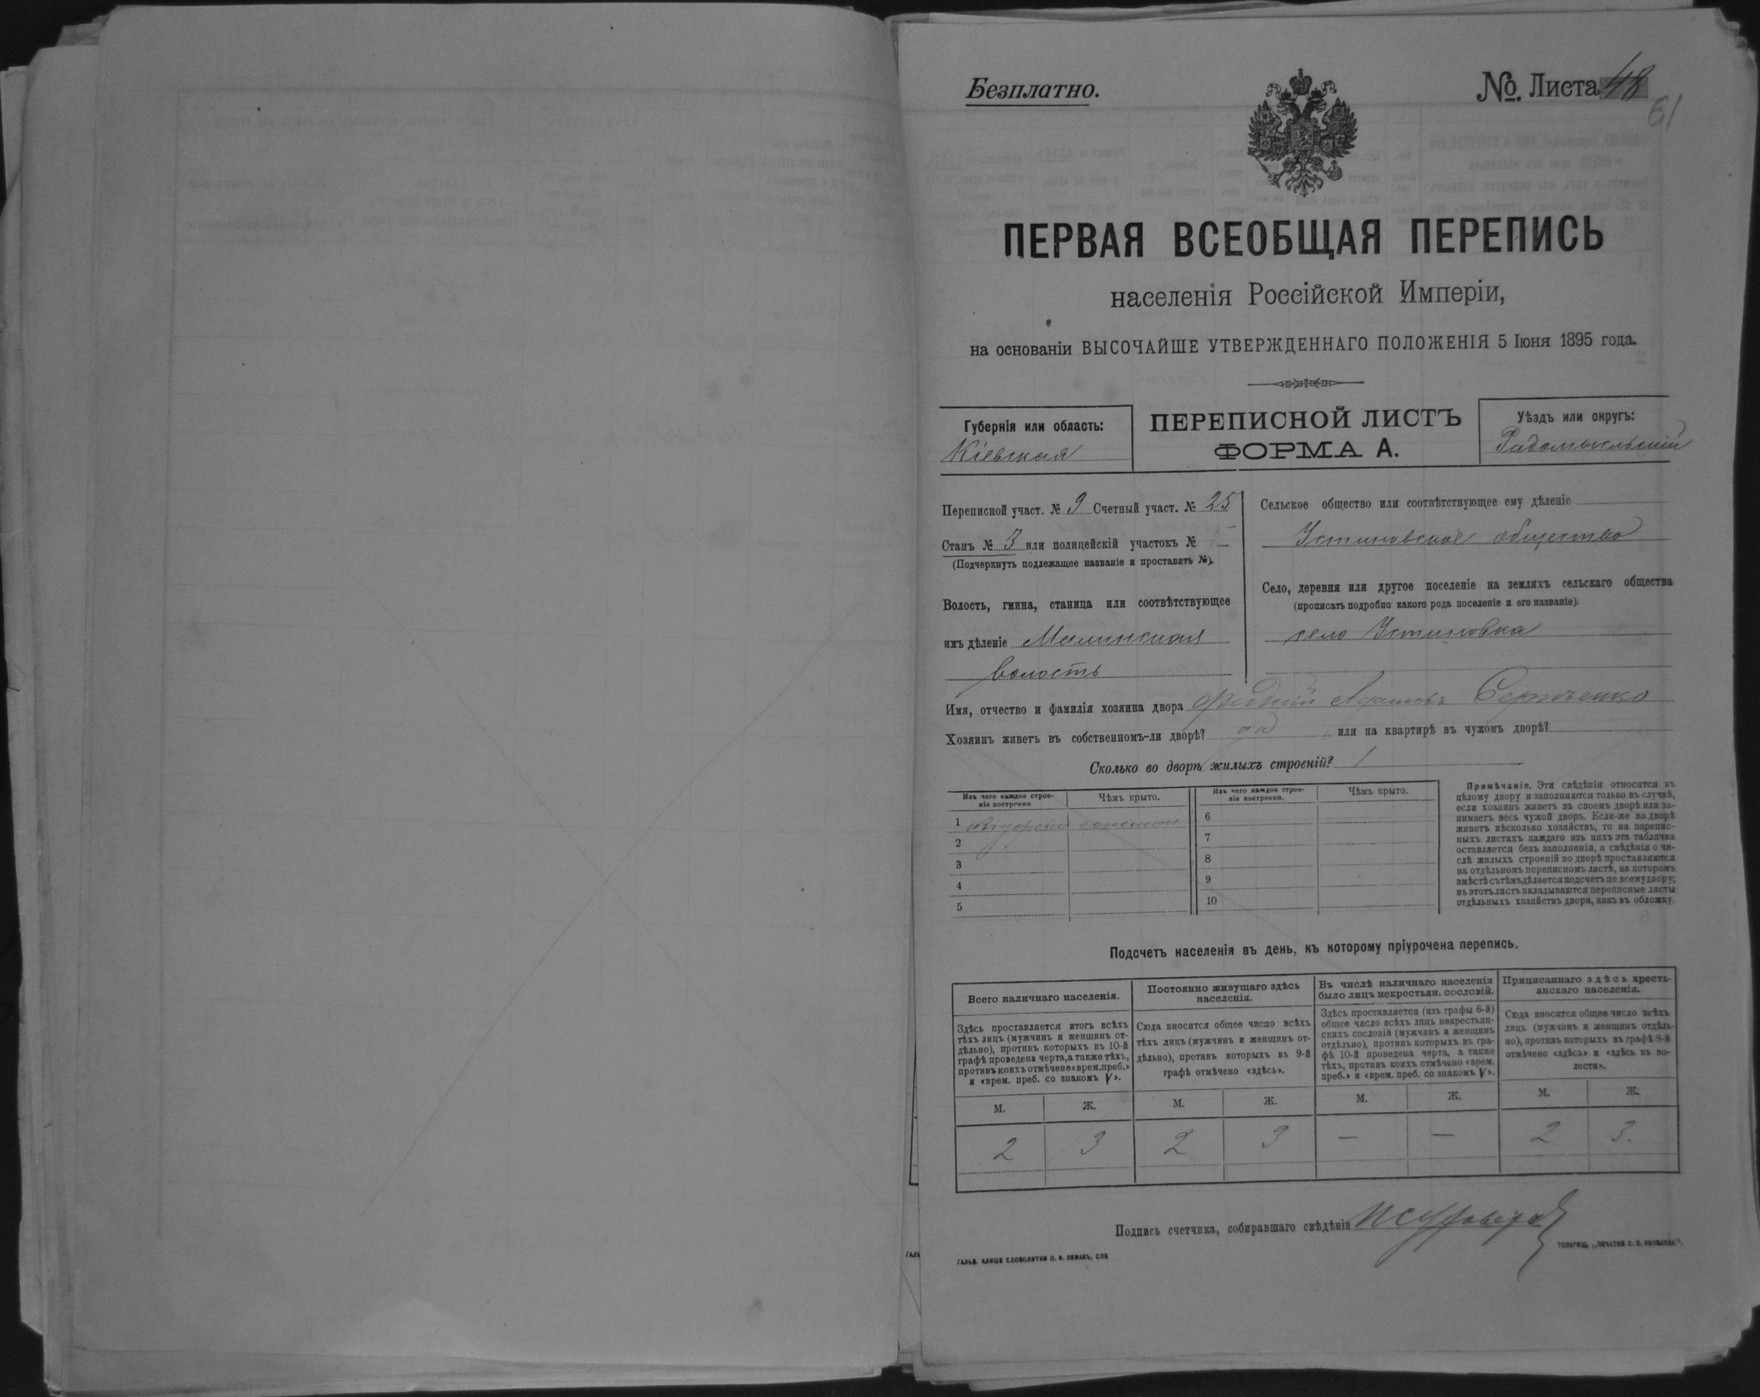 Безплатно.
№. Листа 48
61
ПЕРВАЯ ВСЕОБЩАЯ ПЕРЕПИСЬ
населенія Россійской Имперіи,
на основаніи ВЫСОЧАЙШЕ УТВЕРЖДЕННАГО ПОЛОЖЕНІЯ 5 Іюня 1895 года.
Губернія или область:
Кіевская
ПЕРЕПИСНОЙ ЛИСТЪ
ФОРМА А.
Уѣздъ или округъ:
Радомысльскій
Переписной участ. № 9 Счетный участ. № 25
Станъ № 3 или полицейскій участокъ № —
(Подчеркнуть подлежащее названіе и проставить №).
Волость, гмина, станица или соотвѣтствующее
имъ дѣленіе Малинская
волость
Сельское общество или соотвѣтствующее ему дѣленіе
Устиновское общество
Село, деревня или другое поселеніе на земляхъ сельскаго общества
(прописать подробно какого рода поселеніе и его названіе).
село Устиновка
Имя, отчество и фамилія хозяина двора
Хозяинъ живетъ въ собственномъ-ли дворѣ? да или на квартирѣ въ чужомъ дворѣ?
Сколько во дворѣ жилыхъ строеній? 1
Изъ чего каждое строе-
ніе построено
Чѣмъ крыто.
1 изъ дерева соломою
2
3
4
5
Изъ чего каждое строе-
ніе построено.
Чѣмъ крыто.
6
7
8
9
10
Примѣчаніе. Эти свѣдѣнія относятся къ
цѣлому двору и заполняются только въ случаѣ,
если хозяинъ живетъ въ своемъ дворѣ или за-
нимаетъ весь чужой дворъ. Если-же во дворѣ
живетъ нѣсколько хозяйствъ, то на перепис-
ныхъ листахъ каждаго изъ нихъ эта табличка
оставляется безъ заполненія, а свѣдѣнія о чи-
слѣ жилыхъ строеній во дворѣ проставляются
на отдѣльномъ переписномъ листѣ, на которомъ
вмѣстѣ съ тѣмъ дѣлается подсчетъ по всему двору;
въ этотъ листъ вкладываются переписные листы
отдѣльныхъ хозяйствъ двора, какъ въ обложку.
Подсчетъ населенія въ день, къ которому пріурочена перепись.
Всего наличнаго населенія.
Здѣсь проставляется итогъ всѣхъ
тѣхъ лицъ (мужчинъ и женщинъ от-
дѣльно), противъ которыхъ въ 10-й
графѣ проведена черта, а также тѣхъ,
противъ коихъ отмѣчено «врем. преб.»
и «врем. преб. со знакомъ V».
М. Ж.
2 3
Постоянно живущаго здѣсь
населенія.
Сюда вносится общее число всѣхъ
тѣхъ лицъ (мужчинъ и женщинъ от-
дѣльно), противъ которыхъ въ 9-й
графѣ отмѣчено «здѣсь».
М. Ж.
2 3
Въ числѣ наличнаго населенія
было лицъ некрестьян. сословій.
Здѣсь проставляется (изъ графы 6-й)
общее число всѣхъ лицъ некрестьян-
скихъ сословій (мужчинъ и женщинъ
отдѣльно), противъ которыхъ въ гра-
фѣ 10-й проведена черта, а также
тѣхъ, противъ коихъ отмѣчено «врем.
преб.» и «врем. преб. со знакомъ V».
М. Ж.
— —
Приписаннаго здѣсь кресть-
янскаго населенія.
Сюда вносится общее число всѣхъ
лицъ (мужчинъ и женщинъ отдѣль-
но), противъ которыхъ въ графѣ 8-й
отмѣчено «здѣсь» и «здѣсь къ во-
лости».
М. Ж.
2 3.
Подпись счетчика, собиравшаго свѣдѣнія
ГАЛЬВ. КЛИШЕ СЛОВОЛИТНИ О. И. ЛЕМАНЪ, СПБ
ТОВАРИЩ. „ПЕЧАТНЯ С. П. ЯКОВЛЕВА".